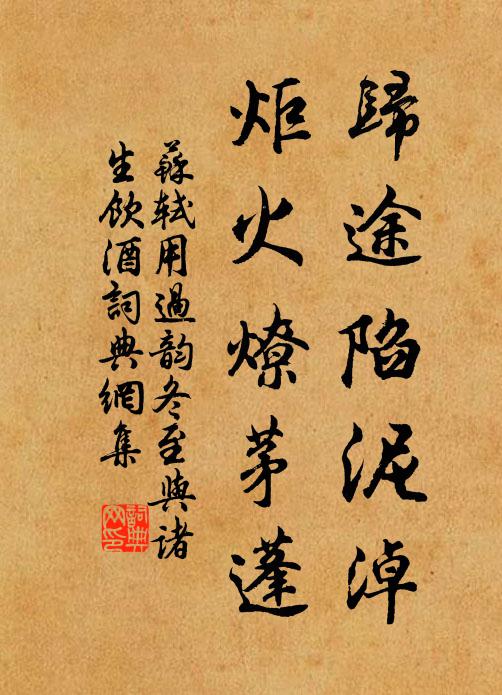 歸途陷泥淖
炬火燎茅蓬
蘇軾用過韵冬至與諸
生飲酒詞典網集
詞典网印